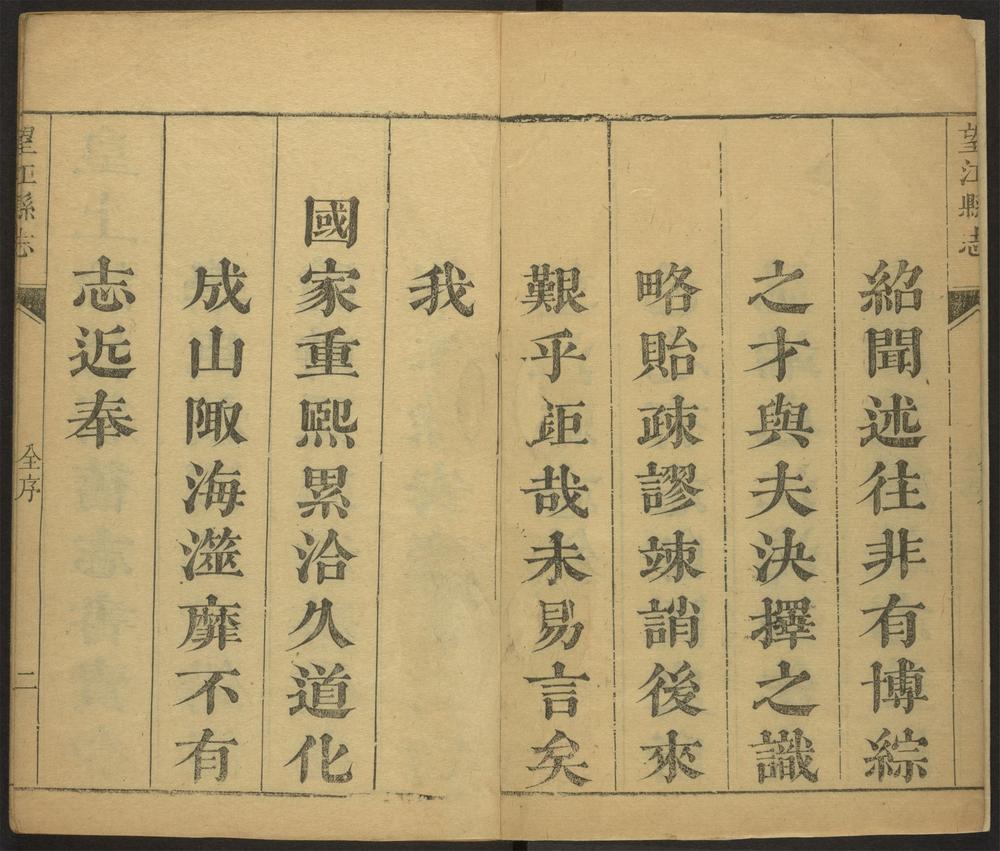 望江縣志
紹聞述往非有博綜
之才與夫決擇之識
略貽疎謬竦誚後來
艱乎距哉未易言矣
我
國家重熙累洽久道化
成山陬海澨靡不有
志近奉
望江縣志
全序
二